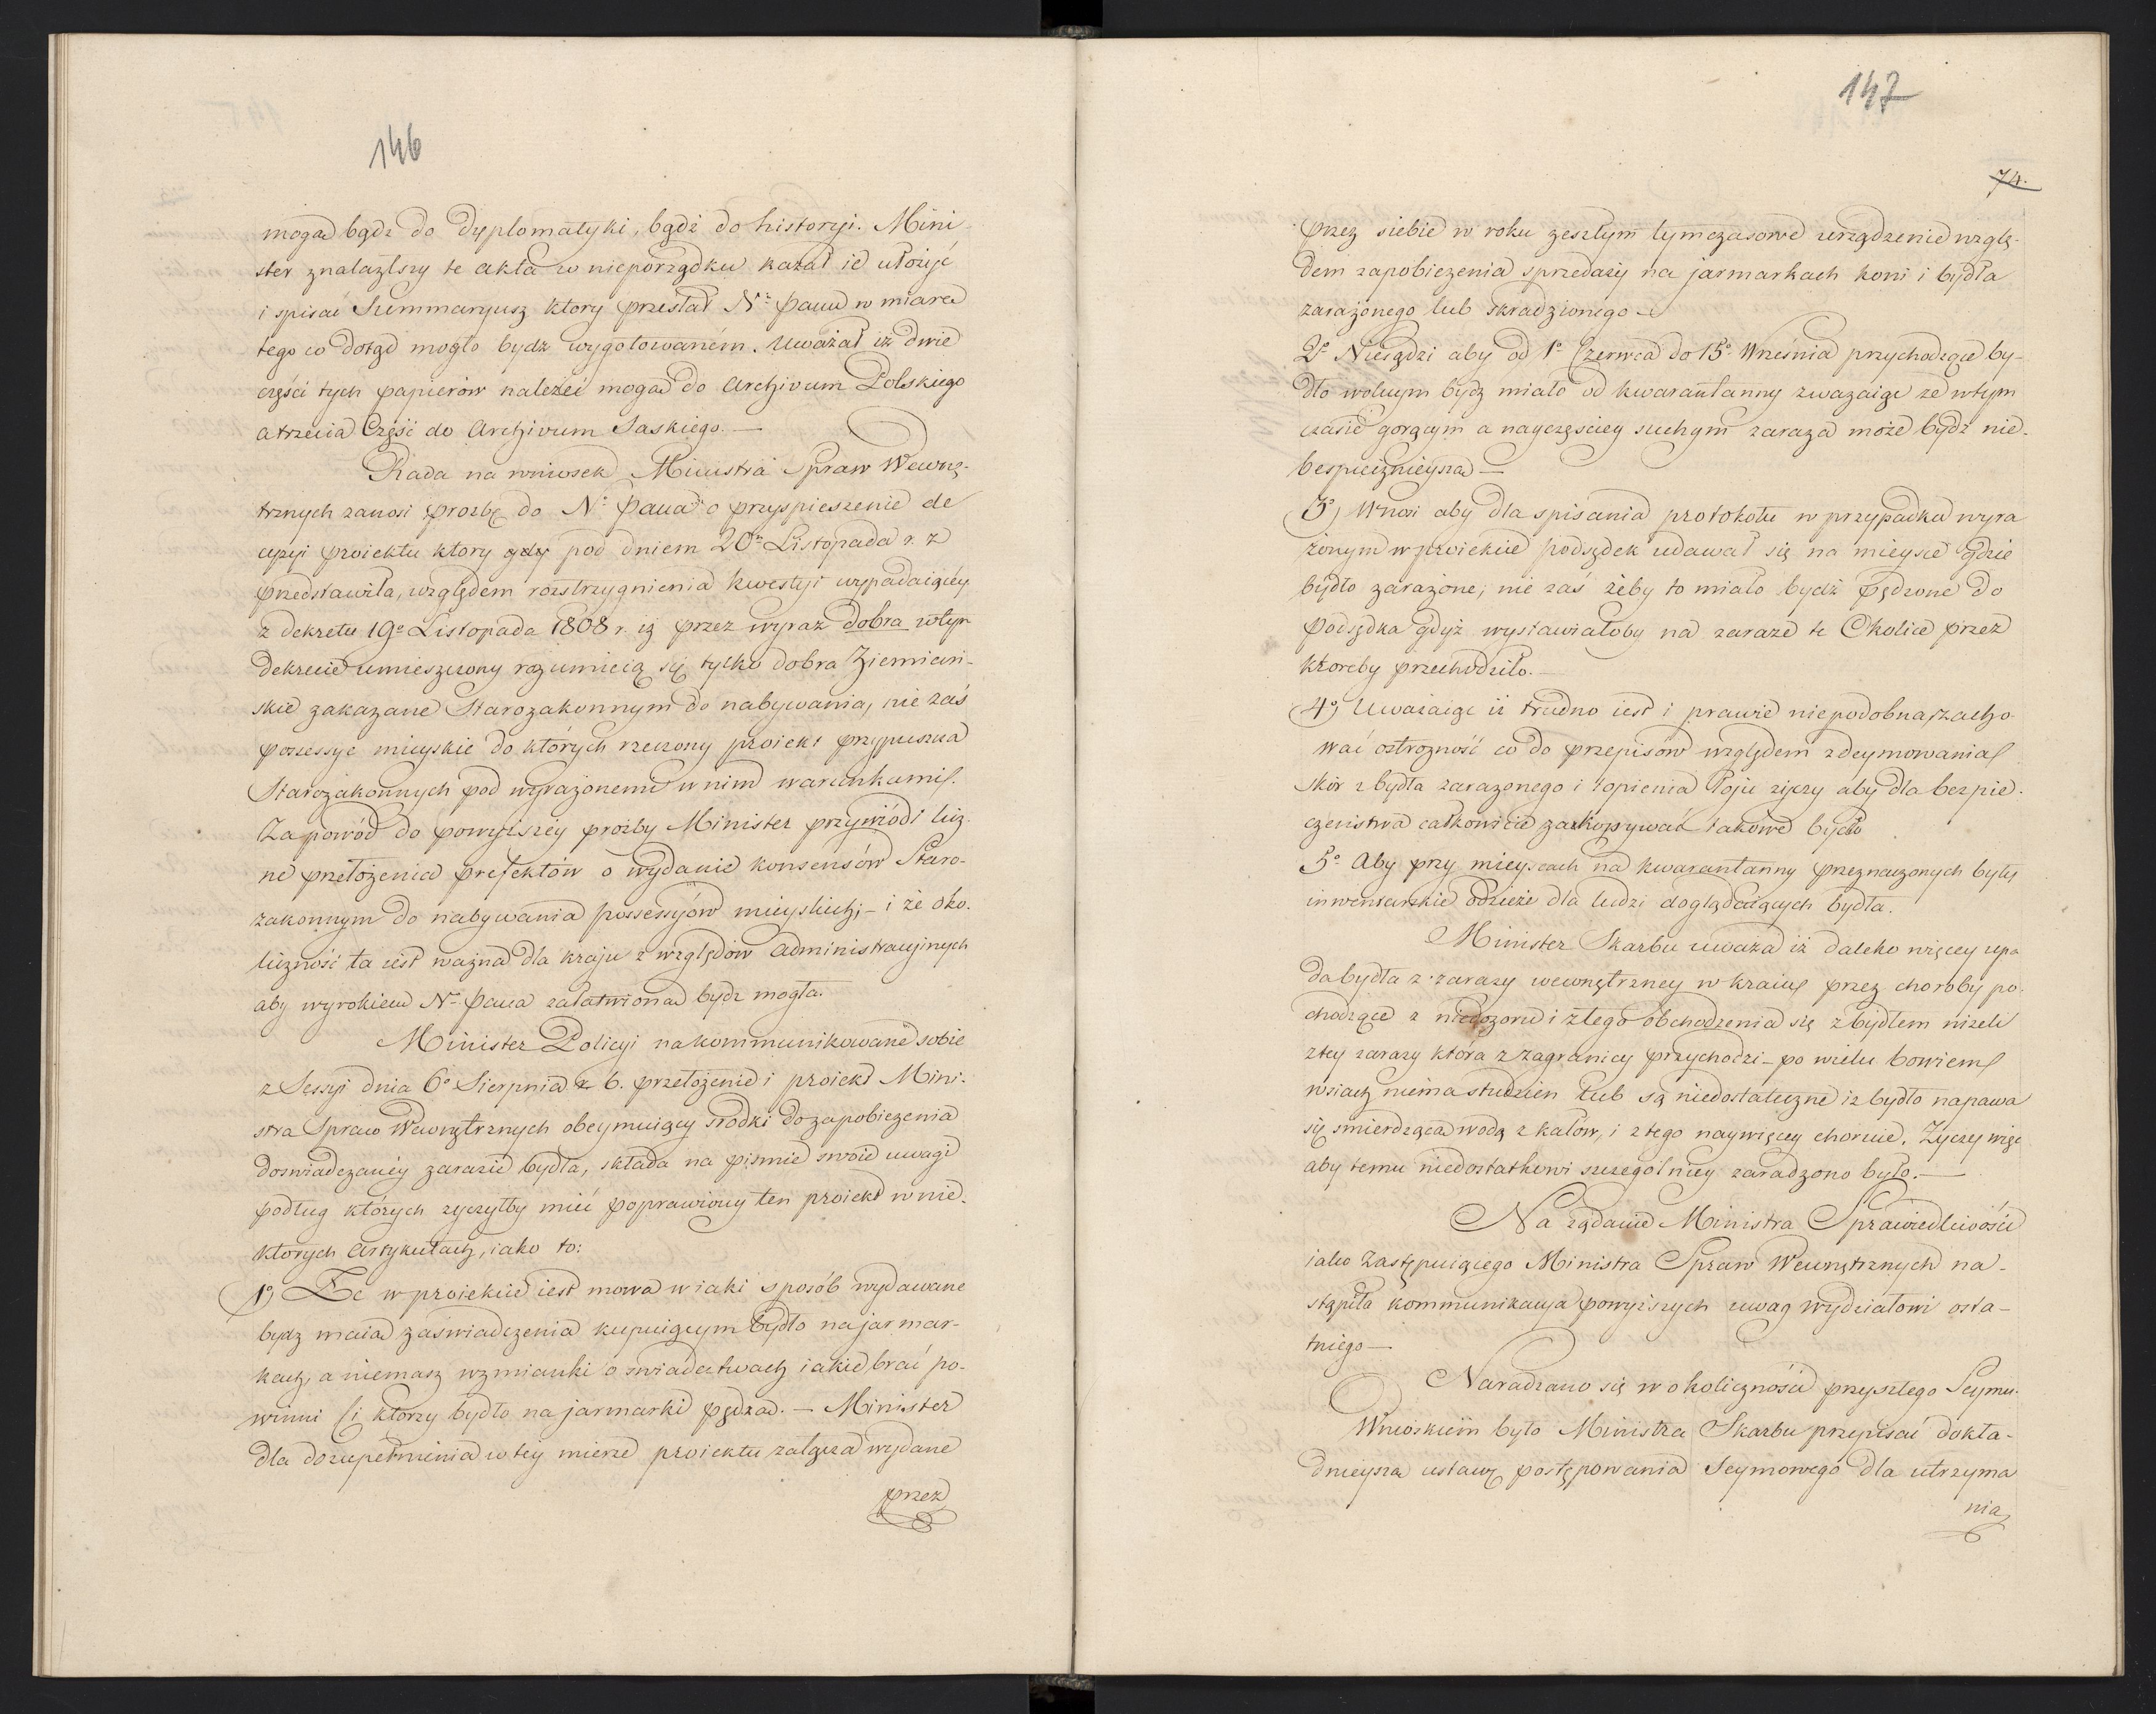 146
mogą bądź do Dyplomatyki, bądź do historyi. Mini-
ster znalazłszy te akta w nieporządku kazał ie ułożyć
i spisać Summaryusz ktory przesłał Nº Panu w miarę
tego co dotąd mogło bydz wygotowaném. Uważał iż dwie
części tych papierów należeć mogą do Archivum Polskiego
a trzecia Część do Archivum Saskiego. —
Rada na wniosek Ministra Spraw Wewnę-
trznych zanosi proźbę do Nº Pana o przyspieszenie de
cyzyi proiektu ktory gdy pod dniem 20º Listopada r. z
przedstawiła, względem rozstrzygnienia kwestyi wypadaiącéy
z dekretu 19º Listopada 1808 r. iż przez wyraz dobra w tym
Dekrecie umieszczony rozumieią się tylko dobra Ziemian-
skie zakazane Starozakonnym do nabywania, nie zaś
possessye mieyskie do których rzeczony proiekt przypuszcza
Starozakonnych pod wyrażonemi w nim warunkami.
Za powód do powyższéy proźby Minister przywiódł licz-
ne przełożenia prefektów o wydanie konsensów Staro-
zakonnym do nabywania possessyów mieyskich; – i że oko-
liczność ta iest ważna dla kraju z względów administracyjnych
aby wyrokiem Nº Pana załatwiona bydz mogła.
Minister Policyi na kommunikowane sobie
z Sessyi dnia 6º Sierpnia r. b. przełożenie i proiekt Mini-
stra Spraw Wewnętrznych obeymuiący srodki do zapobieżenia
doswiadczanéy zarazie bydła, składa na pismie swoie uwagi
podług których życzyłby mieć poprawiony ten proiekt w nie-
ktorych Artykułach, iako to:
1º) Że w proiekcie iest mowa w iaki sposób wydawane
bydz maią zaświadczenia kupuiącym bydło na jarmar-
kach, a niemasz wzmianki o świadectwach iakie brać po-
winni Ci ktorzy bydło na jarmarki pędzą. — Minister
dla dozupełnienia w tey mierze proiektu załącza wydane
przez
147
74.
przez siebie w roku zeszłym tymczasowe urządzenie wzglę-
dem zapobieżenia sprzedaży na jarmarkach koni i bydła
zarażonego lub skradzionego —
2º Niesądzi aby od 1º Czerwca do 15º Września przychodzące by-
dło wolnym bydz miało od kwarantanny zważaiąc że w tym
czasie gorącym a nayczęściey suchym zaraza może bydz nie-
bespiecznieysza —
3º) Wnosi aby dla spisania protokołu w przypadku wyra
żonym w proiekcie podsędek udawał się na mieysce gdzie
bydło zarażone, nie zaś żeby to miało bydź pędzone do
podsędka gdyż wystawiałoby na zarazę te Okolice przez
któreby przechodziło. —
4º) Uważaiąc iż trudno iest i prawie niepodobna zacho-
wać ostrożność co do przepisów względem zdeymowania
skór z bydła zarażonego i topienia łoju życzy aby dla bezpie-
czeństwa całkowicie zakopywać takowe bydło
5º Aby przy mieyscach na kwarantanny przeznaczonych były
inwentarskie odzieże dla ludzi doglądaiących bydła.
Minister Skarbu uważa iż daleko więcey upa
da bydła z zarazy wewnętrzney w kraiu przez choroby po-
chodzące z niedozoru i złego obchodzenia się z bydłem niżeli
z tey zarazy która z zagranicy przychodzi – po wielu bowiem
wsiach niema studzien lub są niedostateczne iż bydło napawa
się smierdzącą wodą z kałów, i z tego naywięcey choruie. Życzy więc
aby temu niedostatkowi szczególniey zaradzono było. —
Na żądanie Ministra Sprawiedliwości
iako Zastępuiącego Ministra Spraw Wewnętrznych na-
stąpiła kommunikacya powyższych uwag wydziałowi osta-
tniego —
Naradzano się w okoliczności przyszłego Seymu.
Wnioskiem było Ministra Skarbu przepisać dokła-
dnieyszą ustawę postępowania Seymowego dla utrzyma
nia